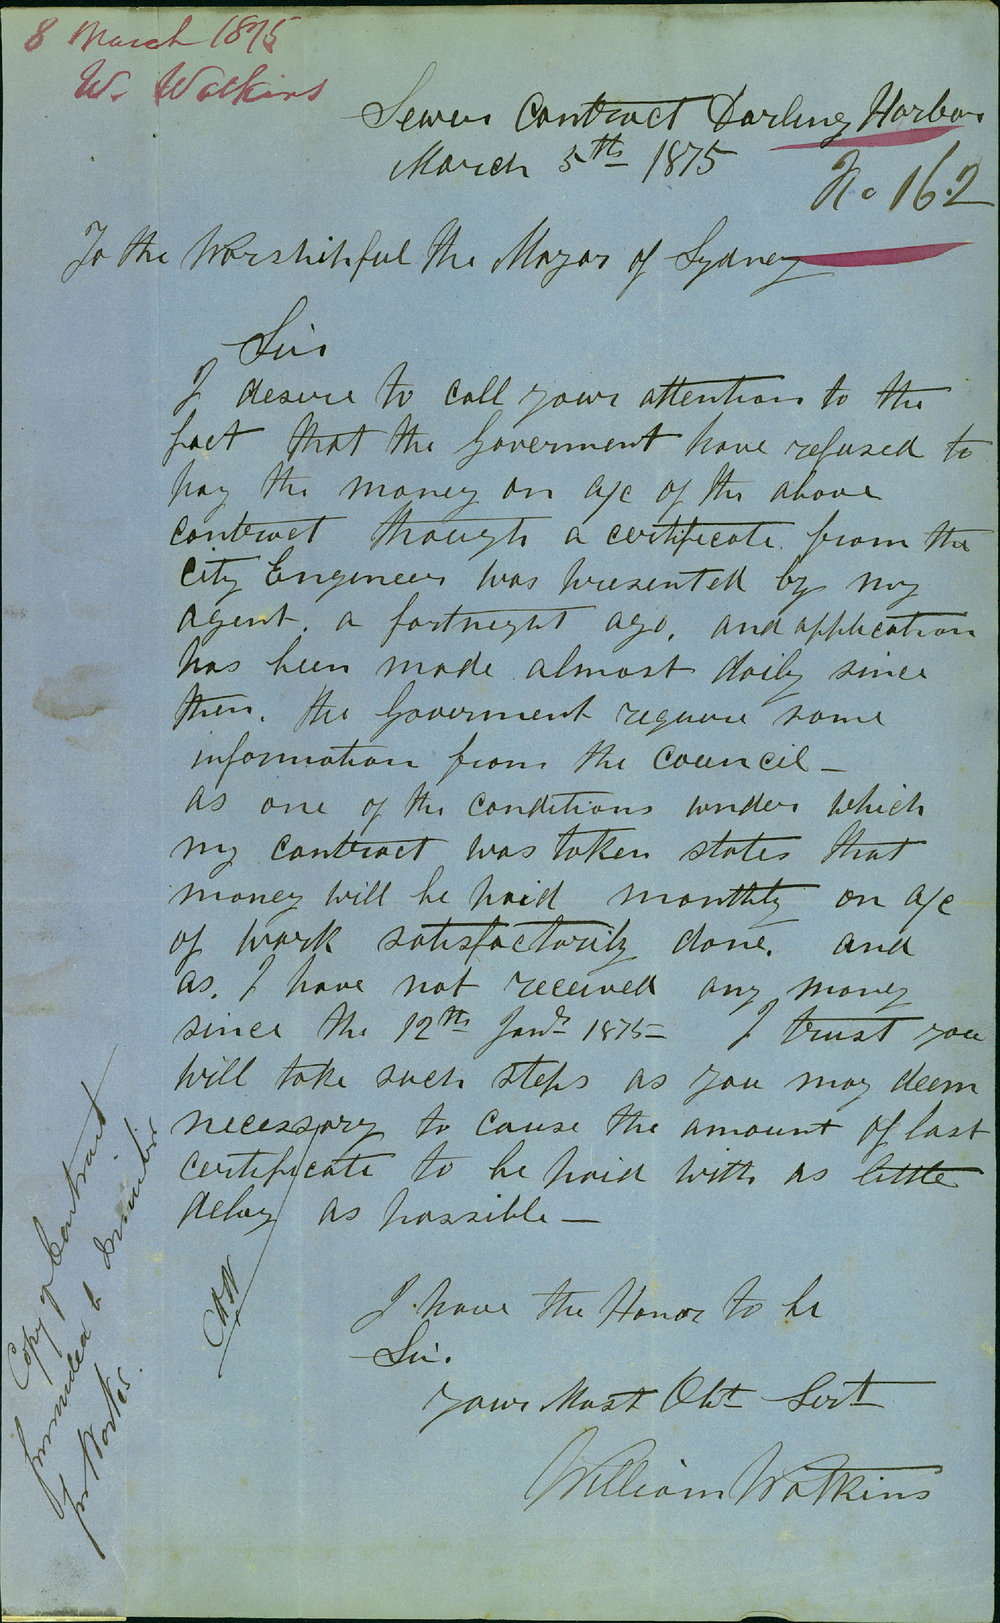 8 March 1875
W. Watkins
Sewer Contract Darling Harbor
March 5th 1875
No 162
To the Worshipful the Mayor of Sydney
Sir
I desire to call your attention to the
fact that the Goverment have refused to
pay the money on a/c of the above
contract though a certificate from the
City Engineer was presented by my
agent. a fortnight ago, and application
has been made almost daily since
then. the Goverment require some
information from the Council —
as one of the conditions under which
my contract was taken states that
money will be paid monthly on a/c
of work satisfactorily done. and
as, I have not received any money
since the 12th Jany 1875 — I trust you
will take such steps as you may deem
necessary to cause the amount of last
certificate to be paid with as little
delay as possible —
I have the Honor to be
Sir.
Your Most Obt Servt
William Watkins
Copy of Contract
forwarded to Minister
for Works.